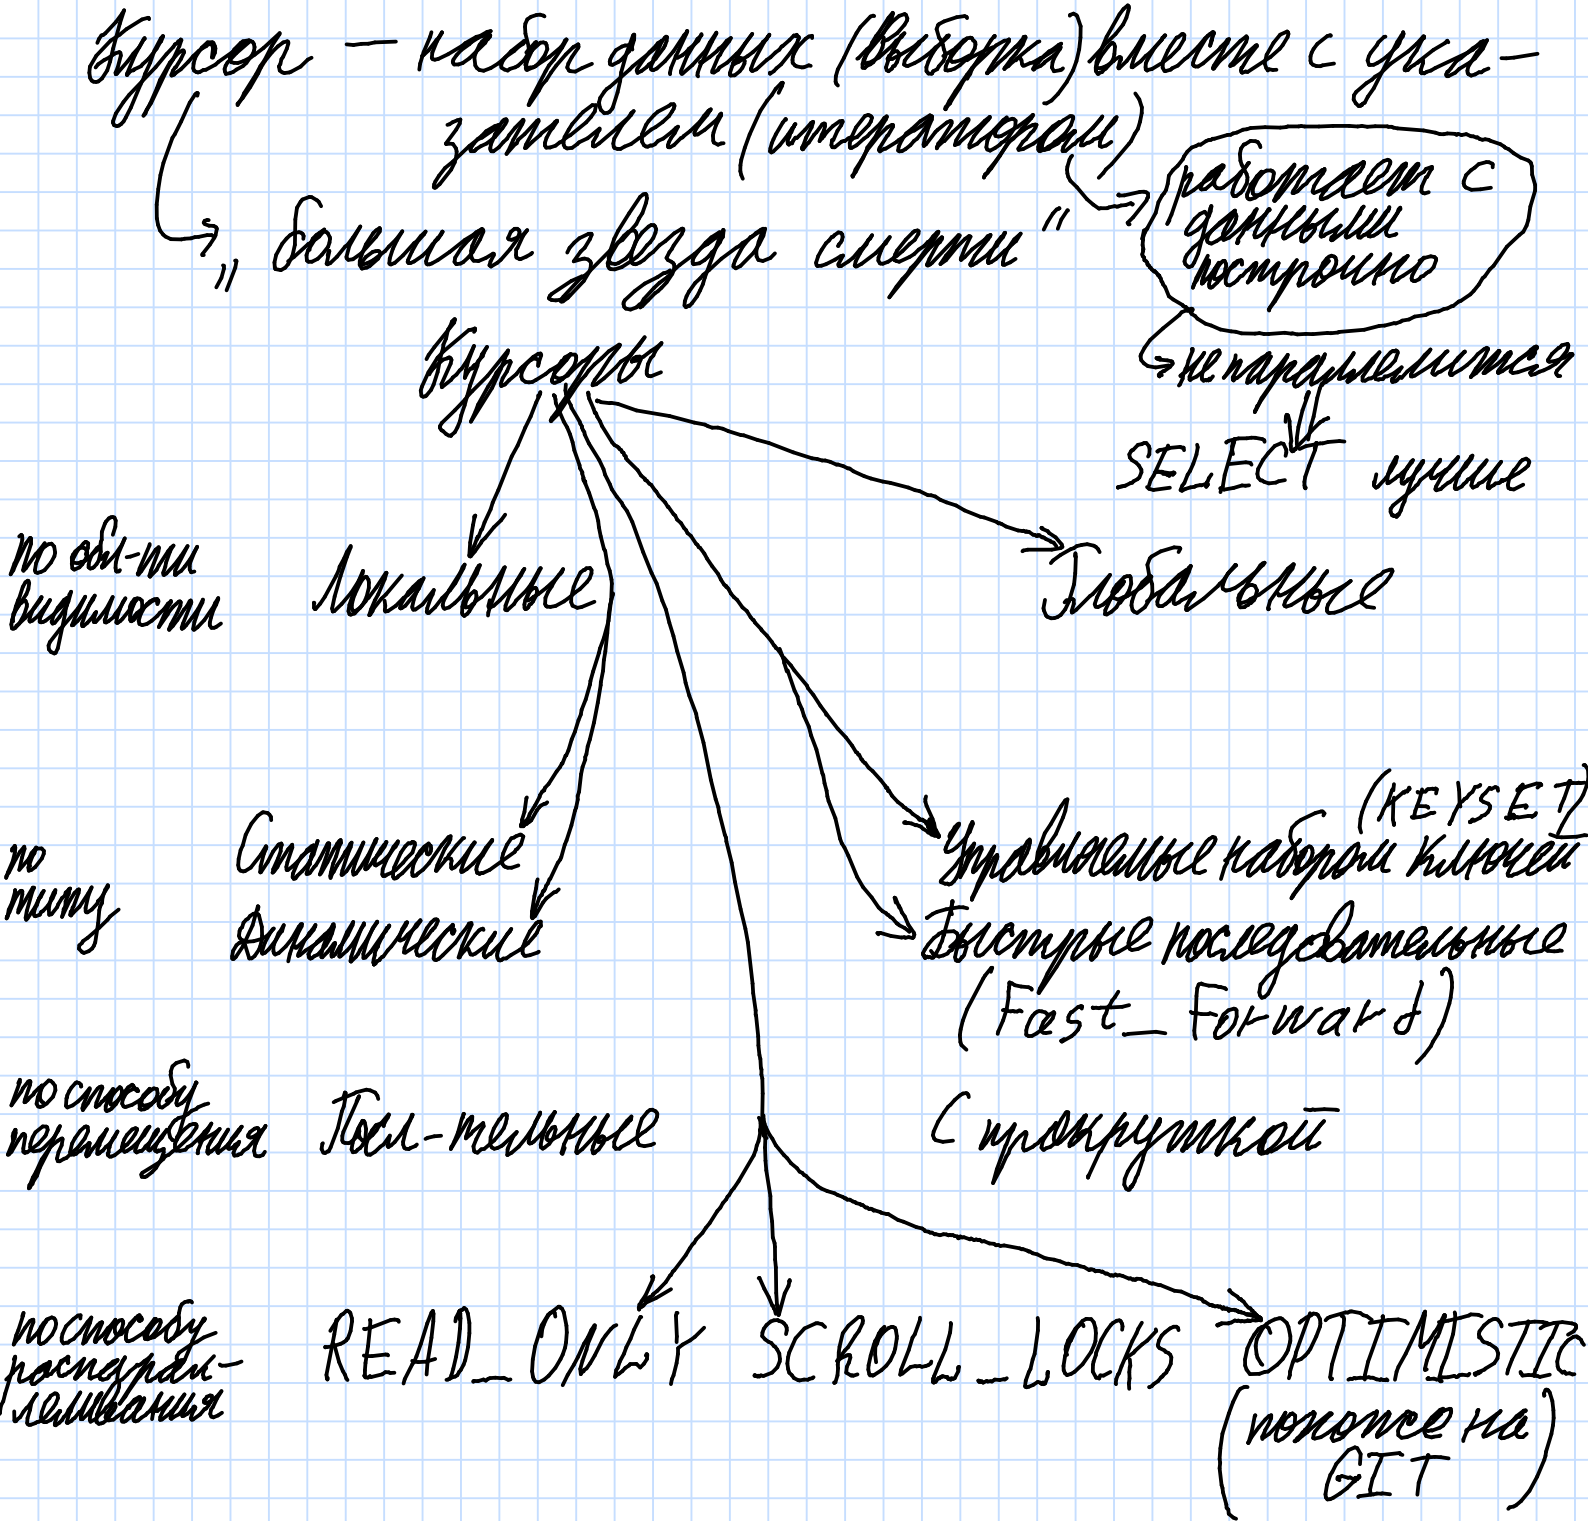 Курсор — набор данных (выборка) вместе с ука-
зателем (итератором)
работает с
данными
построчно
„большая звезда смерти"
Курсоры
не параллелится
SELECT лучше
по обл-ти
видимости
Локальные
Глобальные
(KEYSET)
по
типу
Статические
Управляемые набором ключей
Динамические
Быстрые последовательные
(Fast_Forward)
по способу
перемещения
Посл-тельные
С прокруткой
по способу
распарал-
леливания
READ_ONLY SCROLL_LOCKS OPTIMISTIC
(похоже на
GIT)